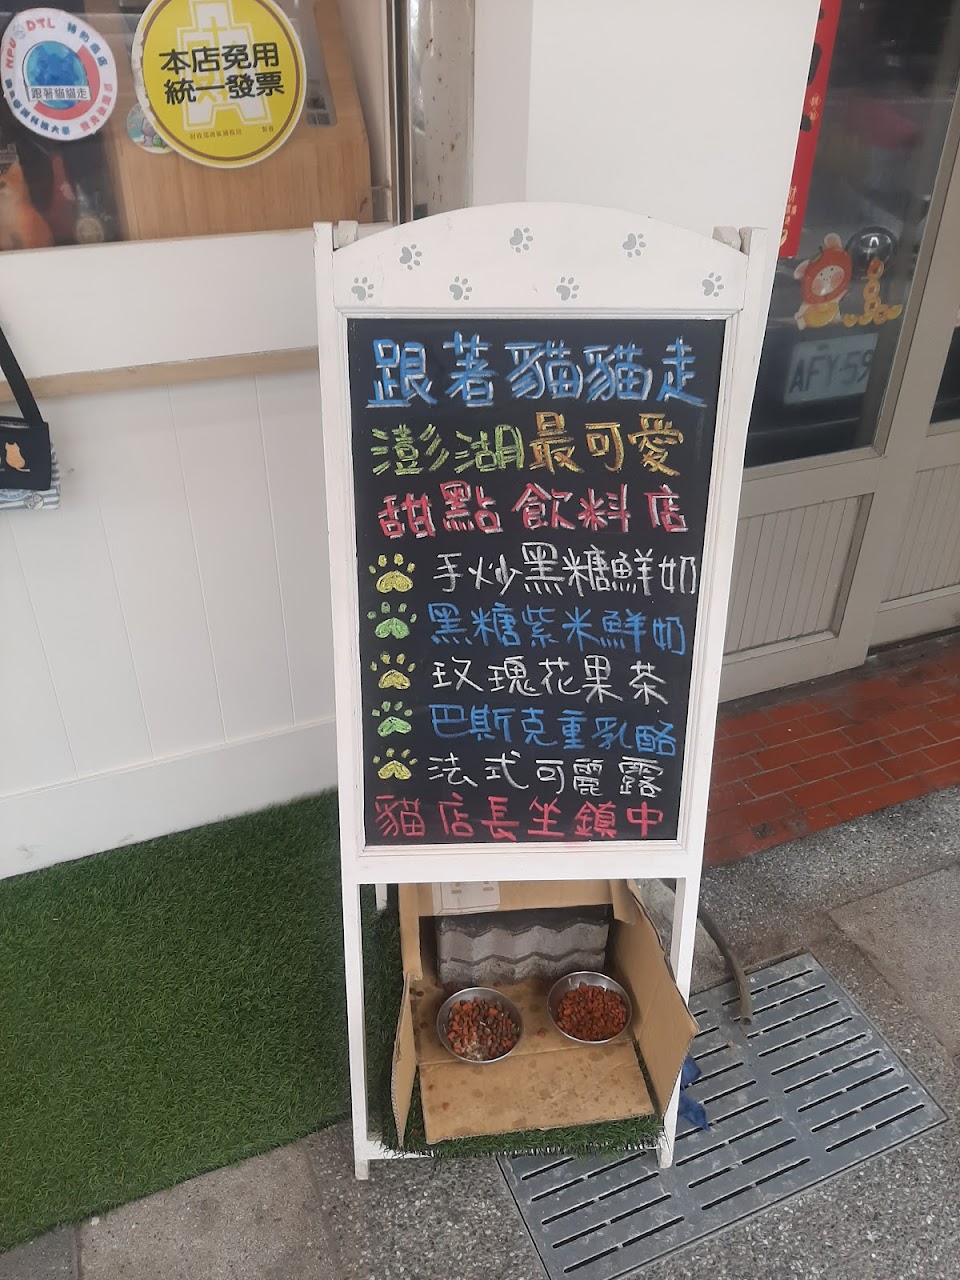 NPU DTL 特約商店
跟著貓貓走
本店免用
統一發票
跟著貓貓走
澎湖最可愛
甜點飲料店
手炒黑糖鮮奶
黑糖紫米鮮奶
玫瑰花果茶
巴斯克重乳酪
法式可麗露
貓店長坐鎮中
AFY-59